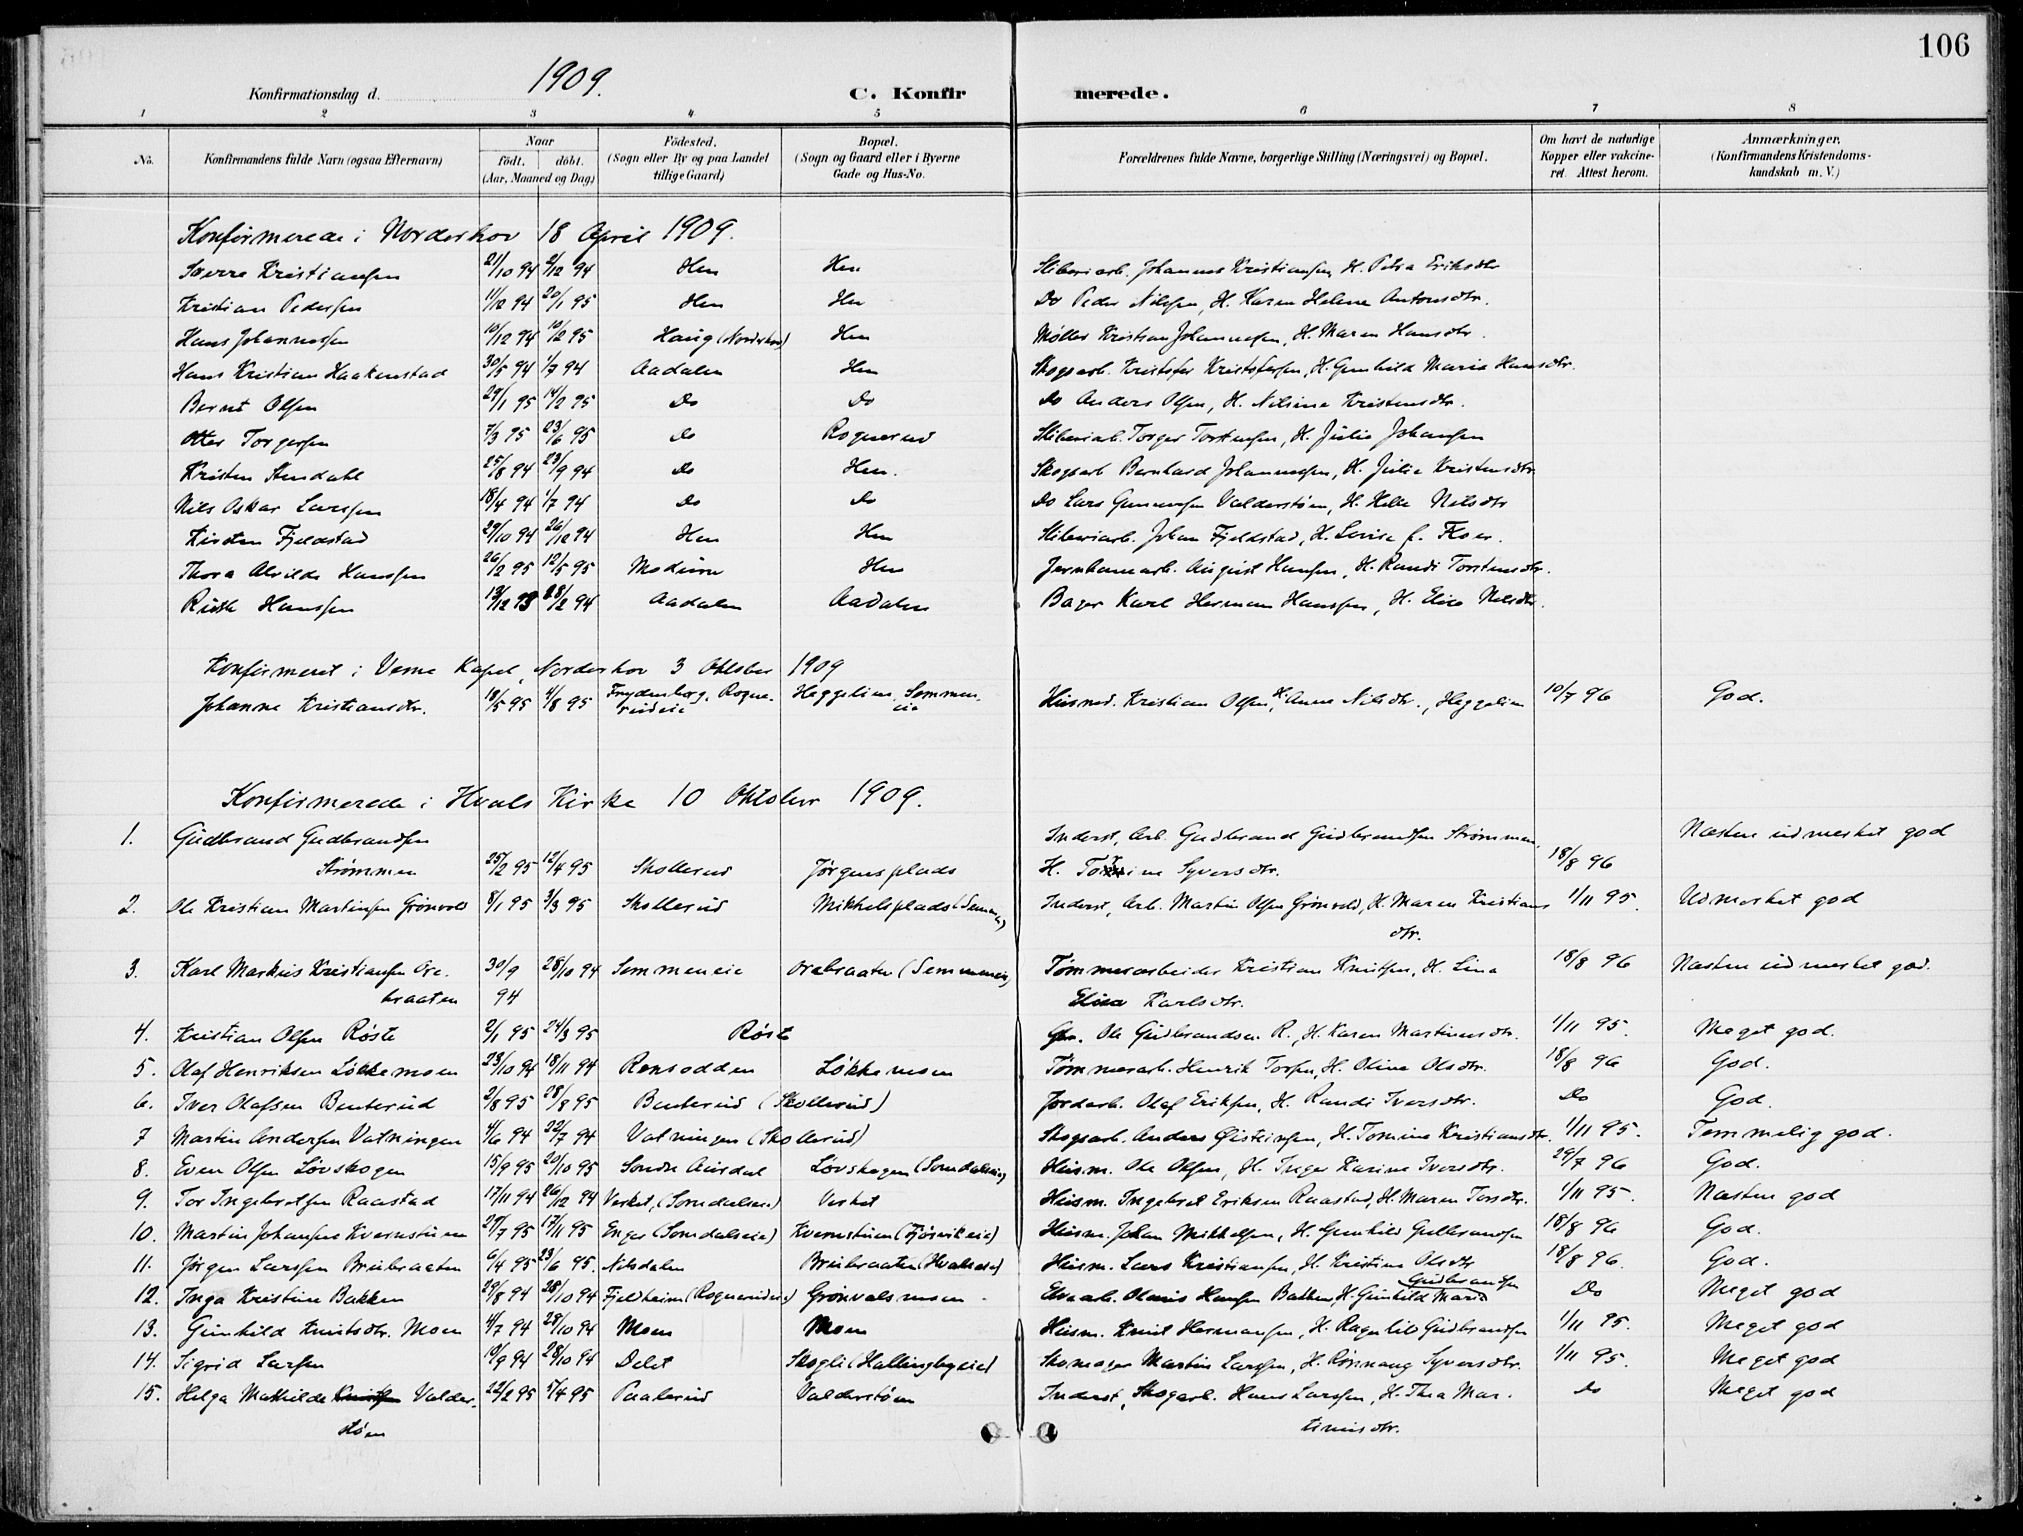 106
Konfirmationsdag d. 1909. C. Konfirmerede.
1 2 3 4 5 6 7 8
No. Konfirmandens fulde Navn (ogsaa Efternavn) Naar födt. döbt. (Aar, Maaned og Dag) Födested. (Sogn eller By og paa Landet tillige Gaard) Bopæl. (Sogn og Gaard eller i Byerne Gade og Hus-No. Forældrenes fulde Navne, borgerlige Stilling (Næringsvei) og Bopæl. Om havt de naturlige Kopper eller vakcineret. Attest herom. Anmærkninger. (Konfirmandens Kristendomskundskab m. V.)
Konfirmerede i Norderhov 18 April 1909.
Sverre Kristiansen 21/10 94 2/12 94 Hen Hen Sliberiarb. Johannes Kristiansen, H. Petra Eriksdtr
Kristian Pedersen 11/12 94 20/1 95 Hen Hen Do Peder Nilsen, H. Karen Helene Antonsdtr.
Hans Johannessen 10/12 94 10/2 95 Haug (Norderhov) Hen Møller Kristian Johannessen, H. Maren Hansdtr.
Hans Kristian Haakenstad 30/5 94 1/7 94 Aadalen Hen Skogsarb. Kristofer Kristofersen, H. Gunhild Marie Hansdtr.
Bernt Olsen 29/1 95 14/2 95 Do Do Do Anders Olsen, H. Nilsine Kristensdtr.
Otter Torgersen 7/3 95 23/6 95 Do Rognerud Sliberiarb. Torger Torstensen, H. Julie Johansen
Kristen Stendahl 25/8 94 23/9 94 Do Hen. Skogsarb Bernhard Johannessen, H. Julie Kristensdtr
Nils Oskar Larssen 18/4 94 1/7 94 Do Do Do Lars Gunnersen Valderstøen, H. Helle Nilsdtr
Kirsten Fjeldstad 29/10 94 26/12 94 Hen Hen Sliberiarb. Johan Fjeldstad, H. Lovise f. Floer.
Thora Alvilde Hanssen 26/2 95 12/5 95 Modum Hen Jernbanearb. August Hansen, H. Randi Torstensdtr.
Ruth Hanssen 13/12 93 28/2 94 Aadalen Aadalen Bager Karl Herman Hanssen, H. Elise Nilsdtr.
Konfirmeret i Veme Kapel, Norderhov 3 Oktober 1909
Johanne Kristiansdtr. 18/5 95 4/8 95 Frydenberg, Rogne- Heggelien, Semmen- Husmd. Kristian Olsen, H. Anne Nilsdtr., Heggelien 10/7 96 God.
rudeie eie
Konfirmerede i Hvals Kirke 10 Oktober 1909.
1. Gudbrand Gudbrandsen Inderst, Arb. Gudbrand Gudbrandsen Strømmen, Næsten udmerket god
Strømmen 25/2 95 12/4 95 Skollerud Jørgensplads H. Torine Syversdtr. 18/8 96
2. Ole Kristian Martinsen Grønvold 8/1 95 3/3 95 Skollerud Mikkelsplads (Semmen) Inderst, Arb. Martin Olsen Grønvold, H. Maren Kristians 1/11 95. Udmerket god
dtr.
3. Karl Markus Kristiansen Ore- 30/9 28/10 94 Semmeneie Orebraaten (Semmeneie) Tømmerarbeider Kristian Knutsen, H. Lina 18/8 96 Næsten udmerket god.
braaten 94 Elisa Karlsdtr.
4. Kristian Olsen Røste 2/1 95 24/3 95 Røste Gbr. Ole Gudbrandsen R., H. Karen Martinusdtr. 1/11 95. Meget god.
5. Olaf Henriksen Løkkemoen 23/10 94 18/11 94 Rensodden Løkkemoen Tømmerarb. Henrik Torsen, H. Oline Olsdtr. 18/8 96 God.
6. Iver Olafsen Benterud 2/8 95 28/8 95 Benterud (Skollerud) Jordarb. Olaf Eriksen, H. Randi Iversdtr. Do God.
7 Martin Andersen Vatningen 4/6 94 22/7 94 Vatningen (Skollerud) Skogsarb. Anders Øisteinsen, H. Tomine Kristiansdtr. 1/11 95. Temmelig god.
8. Even Olsen Løvskogen 15/9 95 20/10 95 Søndre Aurdal Løvskogen (Somdalseie) Husm. Ole Olsen, H. Inger Karine Iversdtr. 29/7 96 God.
9. Tor Ingebretsen Raastad 17/11 94 26/12 94 Verket, (Somdalseie) Verket Husm. Ingebret Eriksen Raastad, H. Maren Torsdtr. 1/11 95. Næsten god
10. Martin Johansen Kvernstuen 27/7 95 17/11 95 Enger (Somdalseie) Kvernstuen (Fjøsvikeie) Husm. Johan Mikkelsen, H. Gunhild Gulbrandsen 18/8 96 God.
11. Jørgen Larssen Brubraaten 6/4 95 23/6 95. Nilsdalen Brubraaten (Hvalseie) Husm. Lars Kristiansen, H. Kristine Olsdtr 18/8 96. God.
12. Inga Kristine Bakken 29/8 94 28/10 94 Fjeldheim (Rognerudeie) Grønvolsmoen Elvearb. Olaus Hansen Bakken, H. Gunhild Marie Gudbrandsen Do Meget god
13. Gunhild Knutsdtr. Moen 4/7 94 28/10 94 Moen Moen Husm. Knut Hermansen, H. Ragnhild Gudbrandsen 1/11 95. Meget god
14. Sigrid Larsen 10/9 94 28/10 94 Delet Skogli (Hallingbyeie) Skomager Martin Larssen, H. Rønnaug Syversdtr. 1/11 95. Meget god
15. Helga Mathilde Knutsen Valder- 22/2 95 5/4 95 Paalerud Valderstøen Inderst, Skogarb. Hans Larssen, H. Thea Mar- Do Meget god
støen tinusdtr.